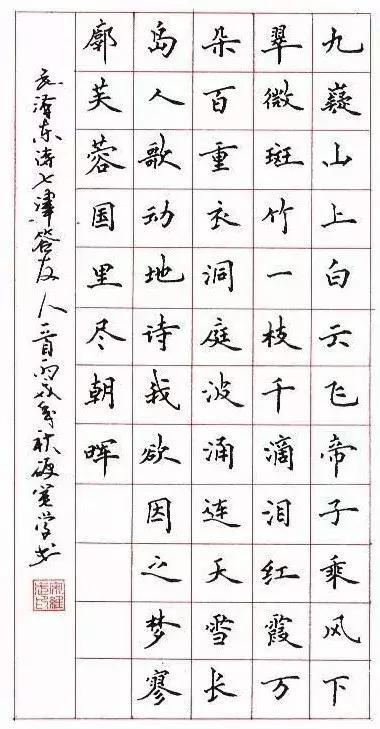 九嶷山上白云飞帝子乘风下
翠微斑竹一枝千滴泪红霞万
朵百重衣洞庭波涌连天雪长
岛人歌动地诗我欲因之梦寥
廓芙蓉国里尽朝晖
毛泽东诗七律答友人一首丙戌年秋 学书